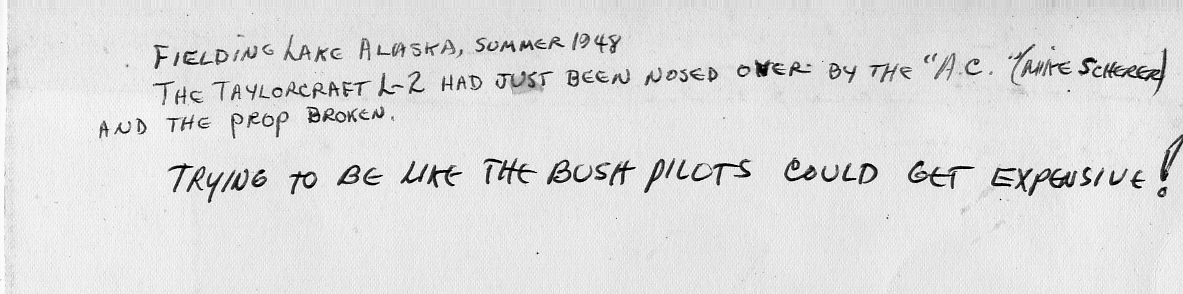 FIELDING LAKE ALASKA, SUMMER 1948
THE TAYLORCRAFT L-2 HAD JUST BEEN NOSED OVER BY THE "A.C." (MIKE SCHERER)
AND THE PROP BROKEN.
TRYING TO BE LIKE THE BUSH PILOTS COULD GET EXPENSIVE!